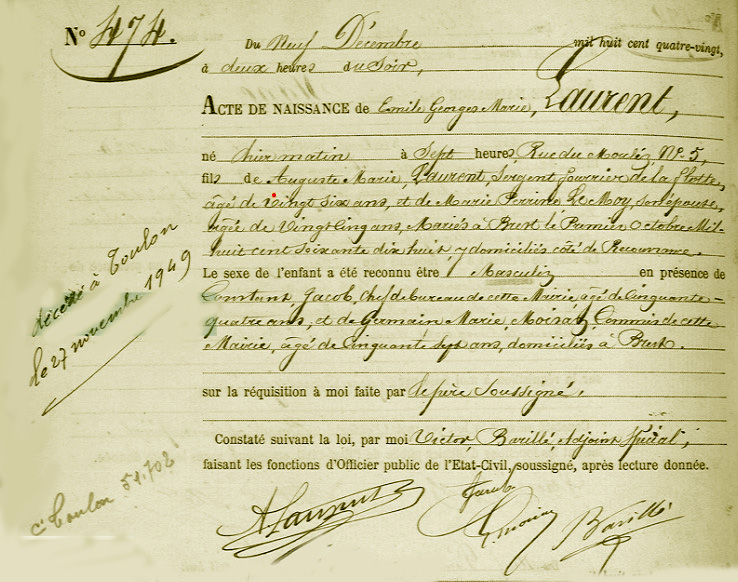 N° 474.
Du Neuf Décembre mil huit cent quatre-vingt,
à deux heures du Soir,
ACTE DE NAISSANCE de Emile Georges Marie, Laurent,
né hier matin à Sept heures, Rue du Moulin, N° 5,
fils de Auguste Marie, Laurent, Sergent fourrier de la flotte,
âgé de Vingt Six ans, et de Marie Perrine Le Moy, son épouse,
âgée de Vingt Cinq ans, Mariés à Brest le Premier Octobre Mil-
huit cent soixante dix huit, y domiciliés côté de Recouvrance.
Le sexe de l'enfant a été reconnu être Masculin en présence de
Constant, Jacob, Chef de bureau de cette Mairie, âgé de Cinquante-
quatre ans, et de Germain Marie, Moisan, Commis de cette
Mairie, âgé de Cinquante sept ans, domiciliés à Brest.
sur la réquisition à moi faite par le père Soussigné.
Constaté suivant la loi, par moi Victor, Barillé, Adjoint Spécial,
faisant les fonctions d'Officier public de l'Etat-Civil, soussigné, après lecture donnée.
A Laurent Jacob
G. Moisan Barillé
décédé à Toulon
le 27 novembre 1949
Toulon 51.702